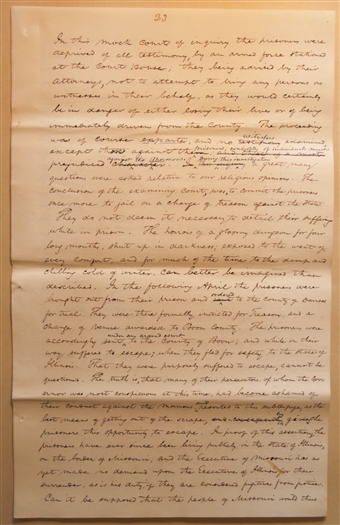 23
In this mock Court of enquiry the prisoners were
deprived of all testimony, by an armed force stationed
at the Court House; they being advised by their
Attorneys, not to attempt to bring any persons as
witnesses in their behalf, as they would certainly
be in danger of either losing their lives or of being
immediately driven from the County. The proceedings
was of course exparte, and no witnesses examined
except those against them
prejudiced against the Mormons. During this investigation a great many
questions were asked relative to our religious opinions. The
conclusion of the examining court, was, to commit the prisoners
once more to jail on a charge of treason against the State.
They do not deem it, necessary to detail their sufferings
while in prison. The horrors of a gloomy dungeon for four
long months, shut up in darkness, exposed to the want of
every comfort, and for much of the time to the damp and
chilling cold of winter. Can better be imagined than
described. In the following April the prisoners were
brought out from their prison and ordered to the county of Daviess
for trial. They were then formally indicted for Treason, and a
change of venue awarded to Boon County. The prisoners were
accordingly sent, under any armed to the County of Boon, and while on their
way suffered to escape, when they fled for safety to the State of
Illinois. That they were purposely suffered to escape, cannot be
questioned. The truth is, that many of their persecutors, of whom the Gov-
ernor was most conspicuous at this time, had become ashamed of
their conduct against the Mormons, resorted to this subterfuge, as the
best means of getting out of the scrape, giving the
prisoners this opportunity to escape. In proof of this assertion, the
prisoners have ever since been living publicly in the State of Illinois,
on the border of Missouri, and the Executive of Missouri has as
yet made no demand upon the Executive of Illinois for their
surrender, as is his duty, if they are considered fugitives from justice.
Can it be supposed that the people of Missouri would thus